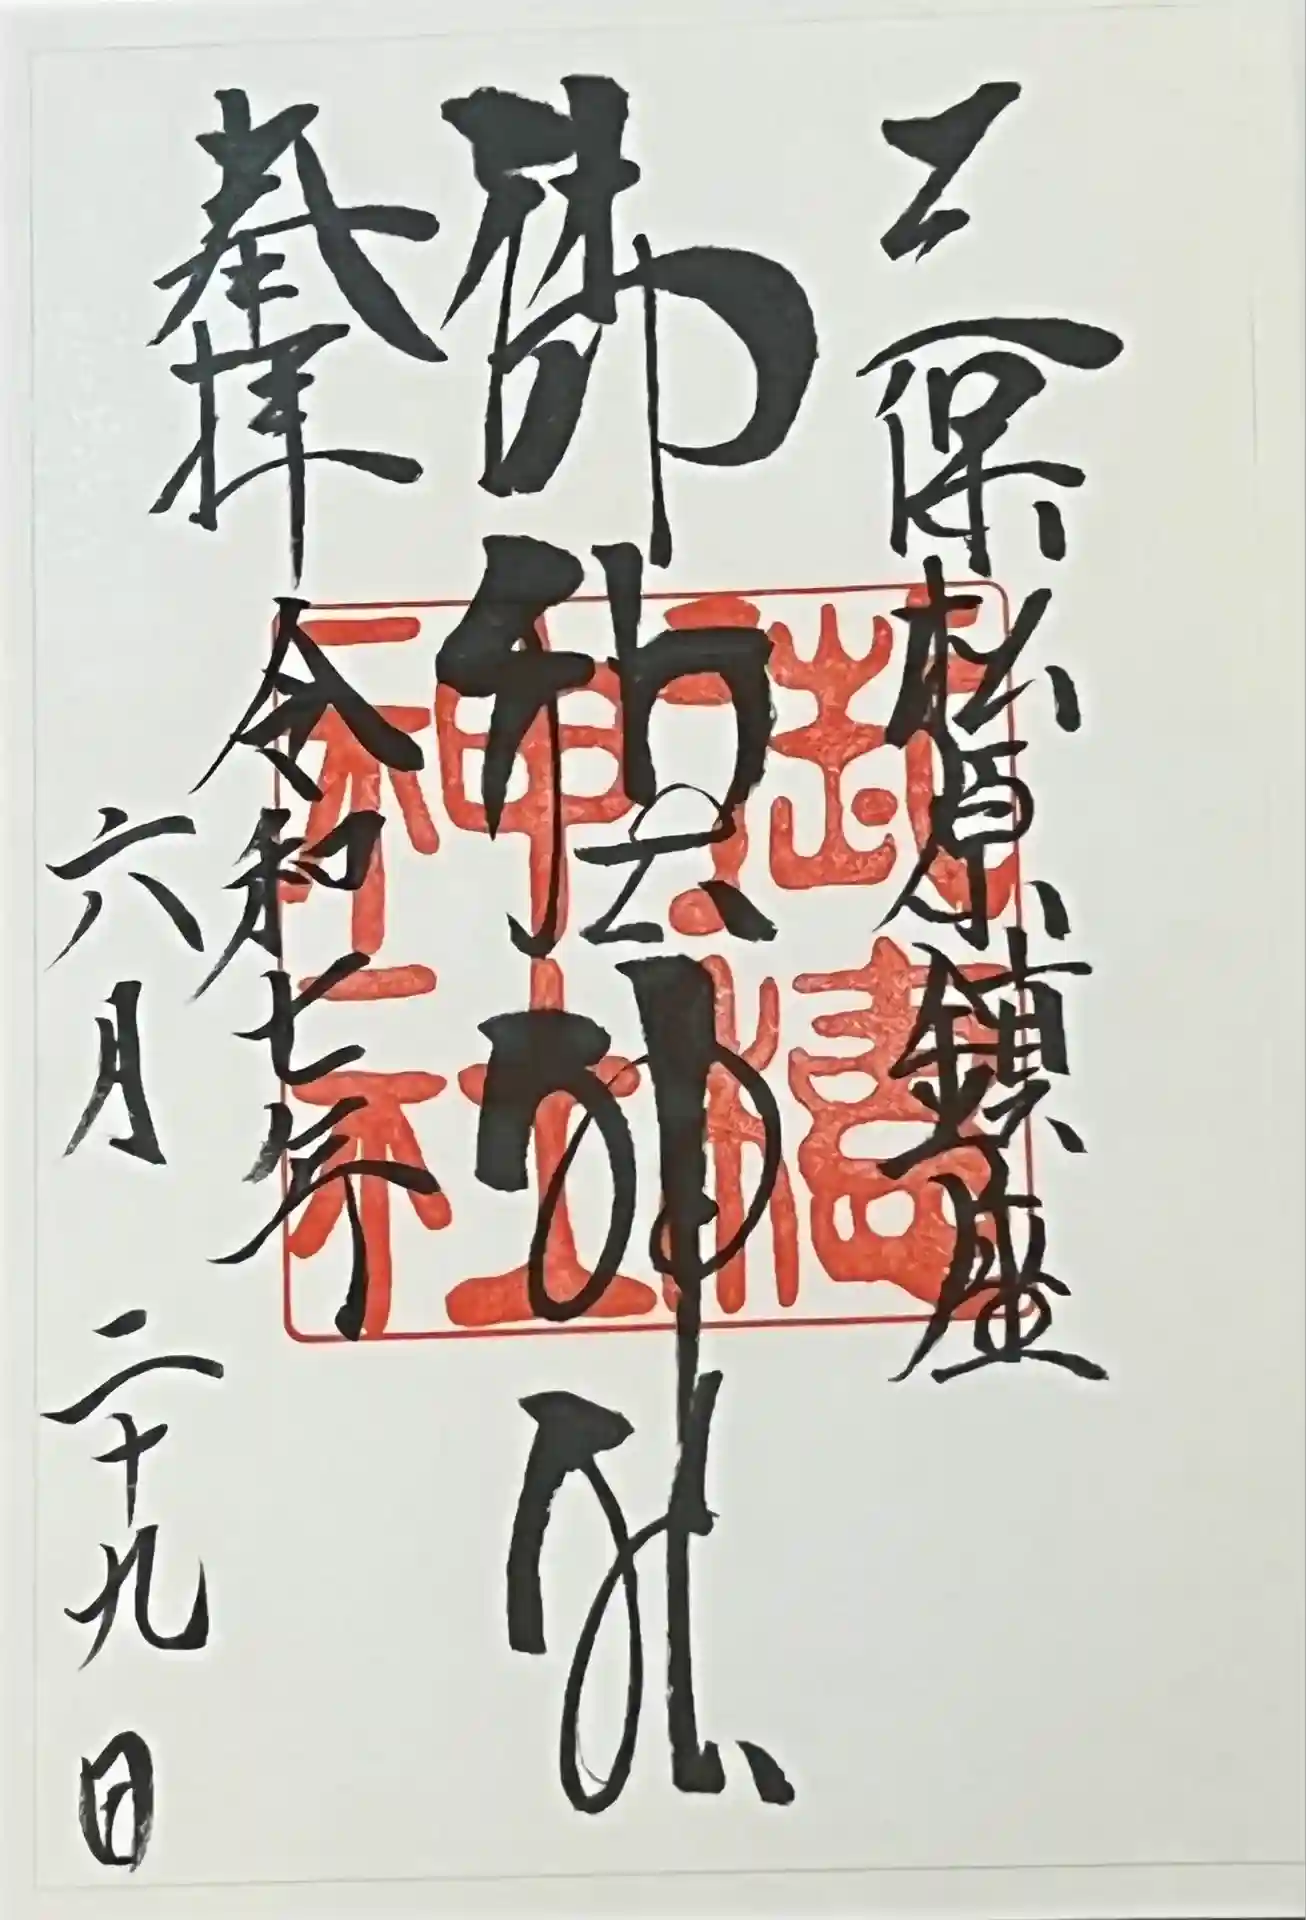 三保松原鎮座
御穂神社
奉拝
令和七年
六月二十九日